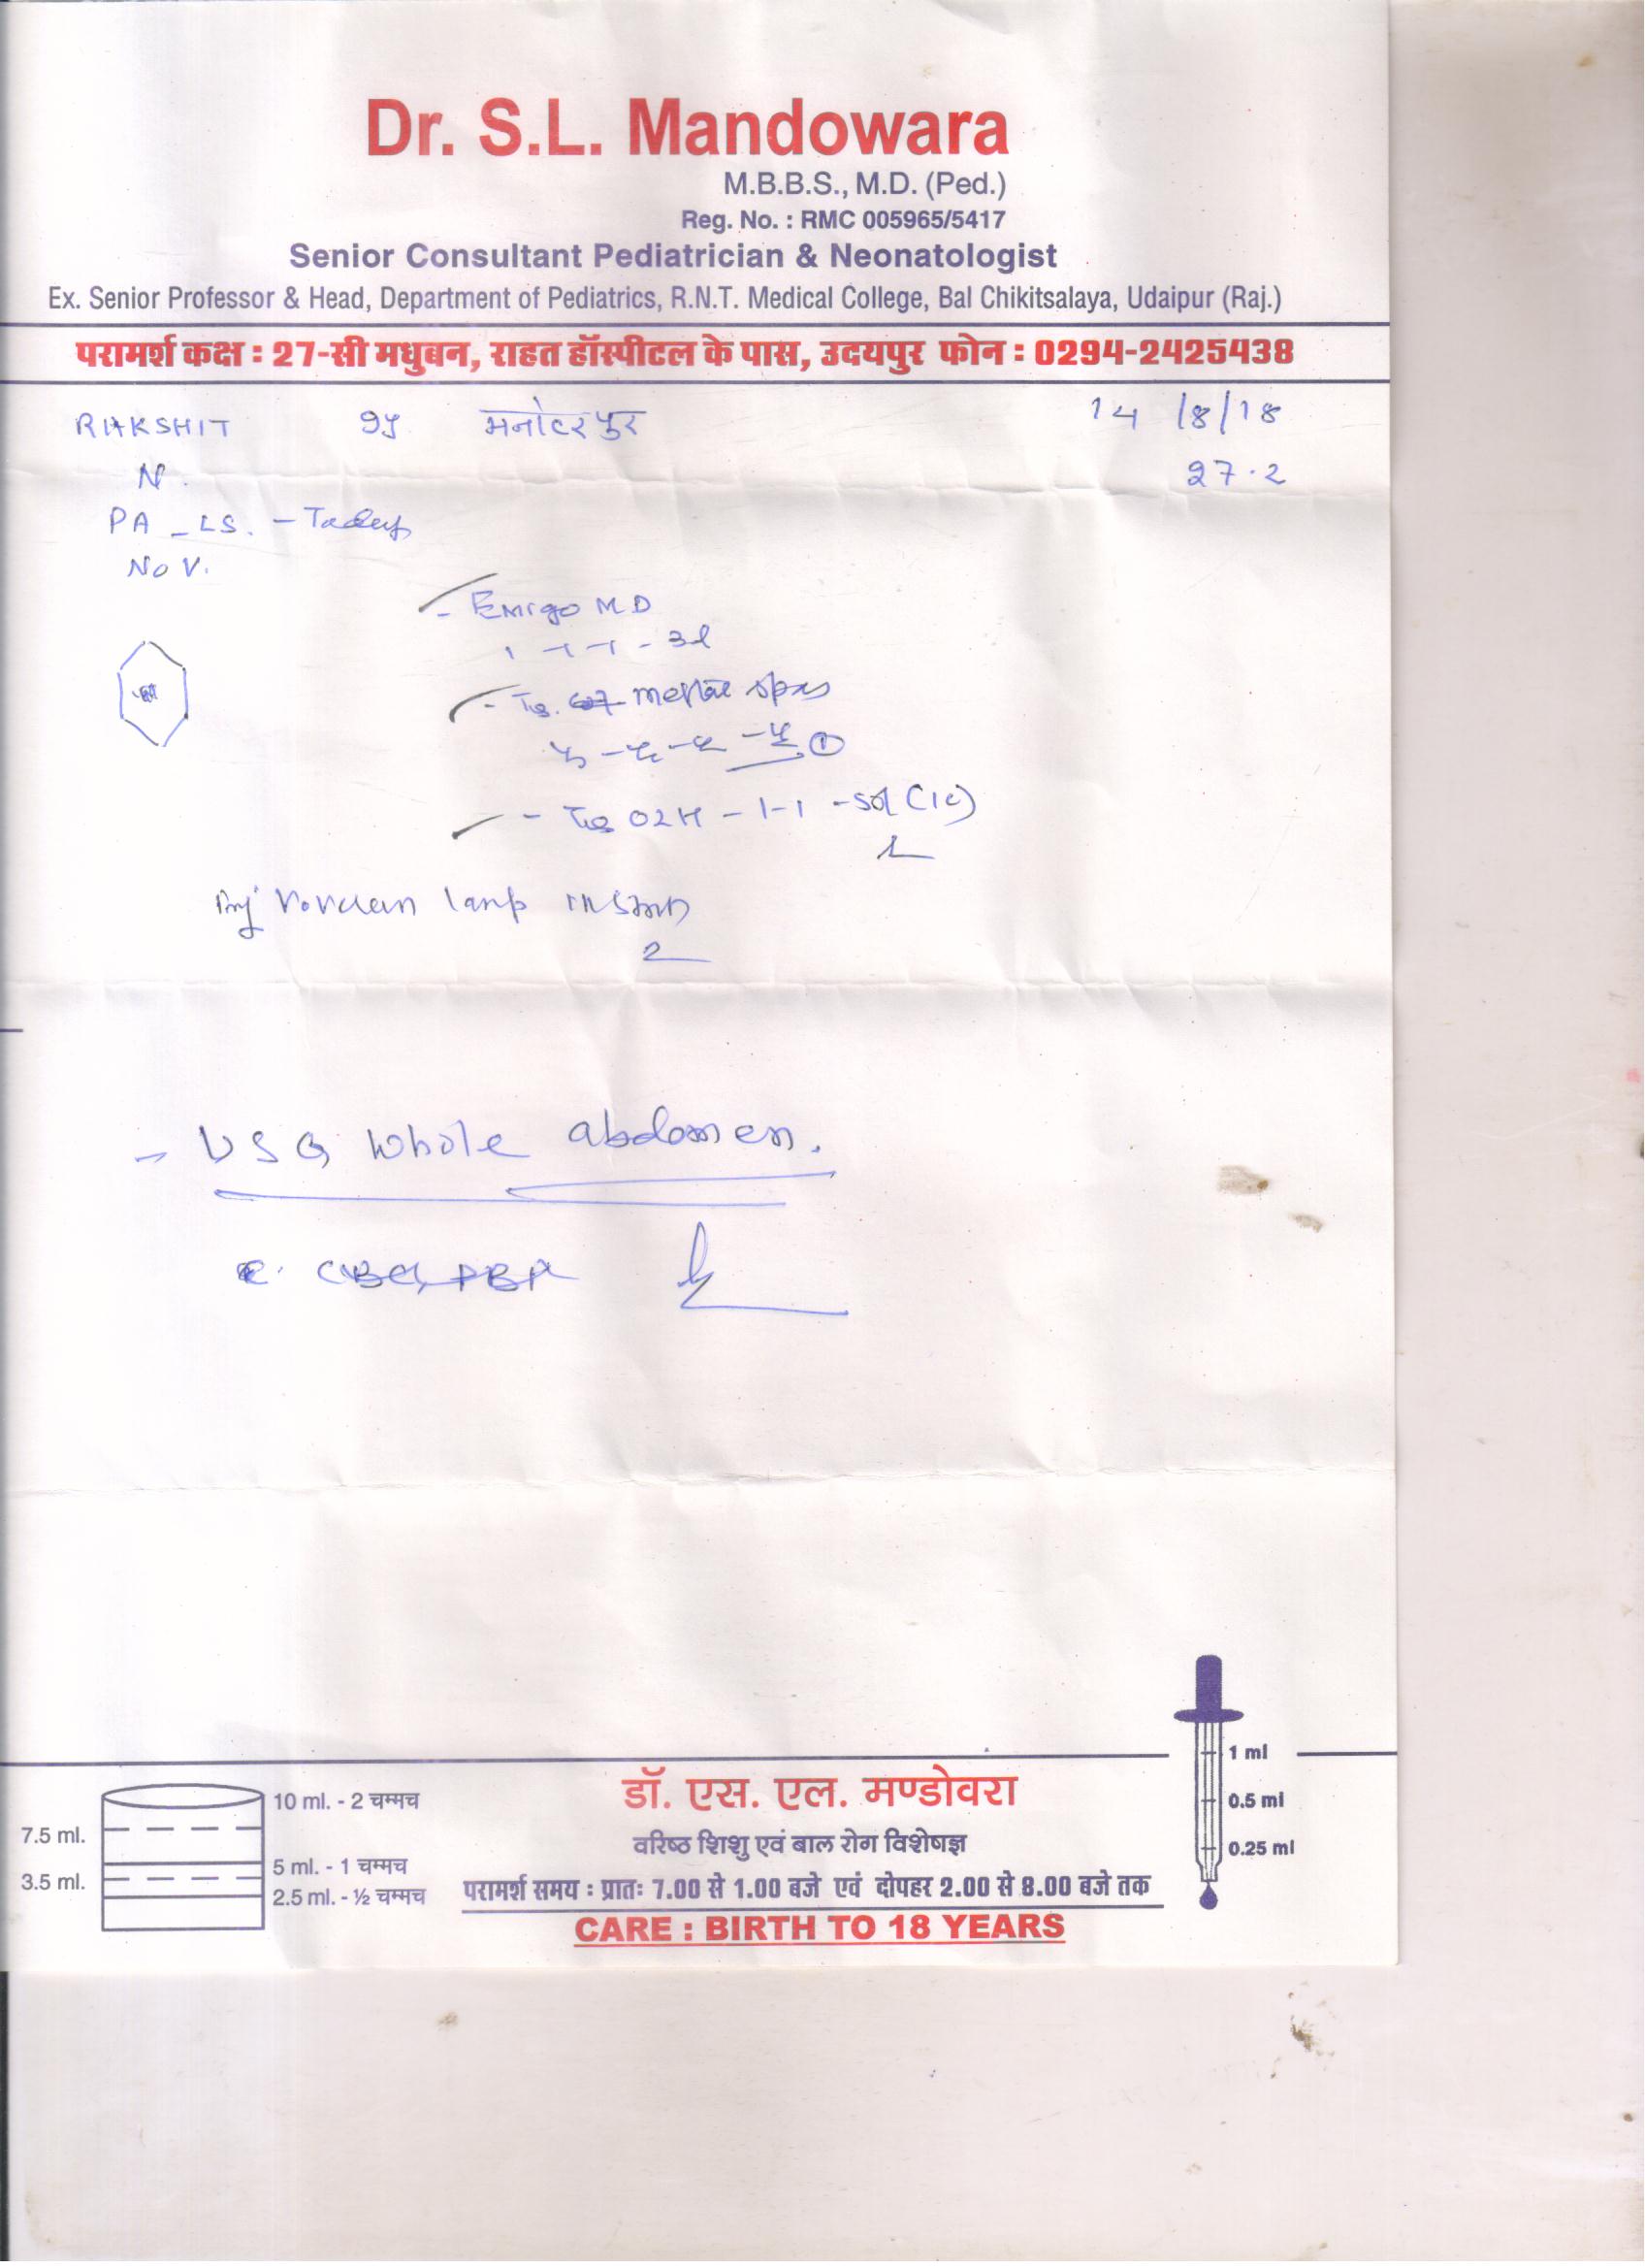 Dr. S.L. Mandowara
M.B.B.S., M.D. (Ped.)
Reg. No. : RMC 005965/5417
Senior Consultant Pediatrician & Neonatologist
Ex. Senior Professor & Head, Department of Pediatrics, R.N.T. Medical College, Bal Chikitsalaya, Udaipur (Raj.)
परामर्श कक्ष : 27-सी मधुबन, राहत हॉस्पीटल के पास, उदयपुर फोन : 0294-2425438
RAKSHIT 9y 14/8/18
N. 27.2
PA - LS. - Today
No V.
- Emigo MD
1 - 1 - 1 - 3d
- Tab. Meftal spas
- Tab O2H - 1-1 - 5d
Inj
2
- USG Whole abdomen.
CBC, PBF
1 ml
10 ml. - 2 चम्मच
7.5 ml.
0.5 ml
5 ml. - 1 चम्मच
3.5 ml.
0.25 ml
2.5 ml. - ½ चम्मच
डॉ. एस. एल. मण्डोवरा
वरिष्ठ शिशु एवं बाल रोग विशेषज्ञ
परामर्श समय : प्रातः 7.00 से 1.00 बजे एवं दोपहर 2.00 से 8.00 बजे तक
CARE : BIRTH TO 18 YEARS